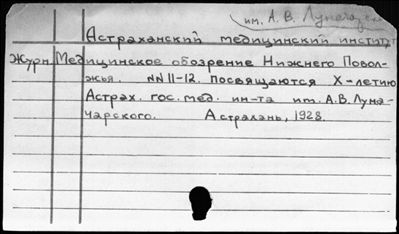 им. А. В. Луначарск
Астраханский медицинский институт
Журн. Медицинское обозрение Нижнего Повол-
жья. NN 11-12. посвящаются X-летию
Астрах. гос. мед. ин-та им. А.В. Луна-
чарского. Астрахань, 1928.